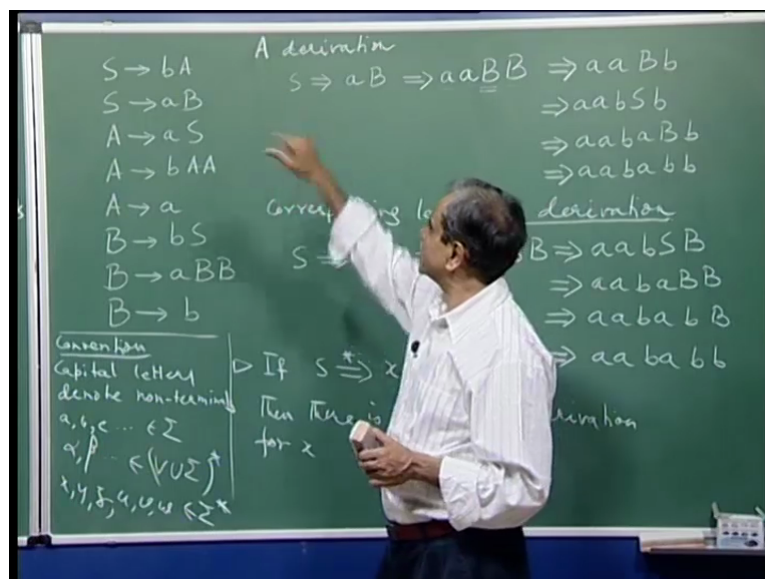 S → bA
S → aB
A → aS
A → bAA
A → a
B → bS
B → aBB
B → b
Convention
Capital letters
denote non-terminals
a, b, c ... ∈ Σ
α, β ... ∈ (V ∪ Σ)*
x, y, z, u, v, w ∈ Σ*
A derivation
S ⇒ aB ⇒ aaBB ⇒ aaBb
⇒ aabSb
⇒ aabaBb
⇒ aababb
Corresponding derivation
S ⇒ B ⇒ aabSB
⇒ aabaBB
⇒ aababB
⇒ aababb
▷ If S *⇒ x
Then there is
for x